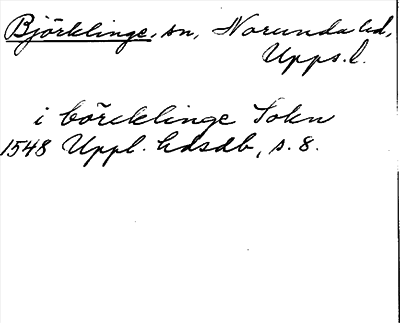 Björklinge, sn, Norunda hd,
Upps. l.
i börcklinge Sokn
1548 Uppl. hdsdb, s. 8.